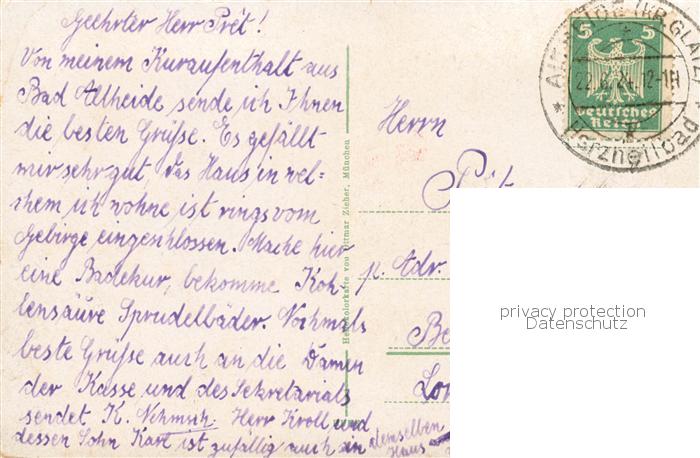 Geehrter Herr Prét!
Von meinem Kuraufenthalt aus
Bad Altheide sende ich Ihnen
die besten Grüße. Es gefällt
mir sehr gut, das Haus in wel=
chem ich wohne ist rings vom
Gebirge eingeschlossen. Mache hier
eine Badekur, bekomme Koh-
lensäure Sprudelbäder. Nochmals
beste Grüße auch an die Damen
der Kasse und des Sekretariats
sendet K. Herr Kroll und
dessen Sohn Karl ist zufällig auch in demselben
Haus
Heliokolorkarte von Ottmar Zieher, München
Herrn
p. Adr.
Be
5 5
Deutsches
Reich
ALTHEIDE (KR. GLATZ)
22. 24. 12-1N
* Herzheilbad
privacy protection
Datenschutz